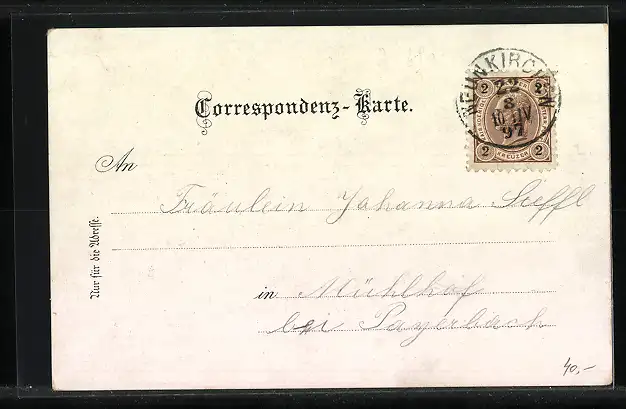 NEUNKIRCHEN
22
8
97
2 2
KREUZER
2 2
Correspondenz-Karte.
An
Fräulein Johanna
Nur für die Adresse.
in Mühlhof
bei Payerbach
40,-